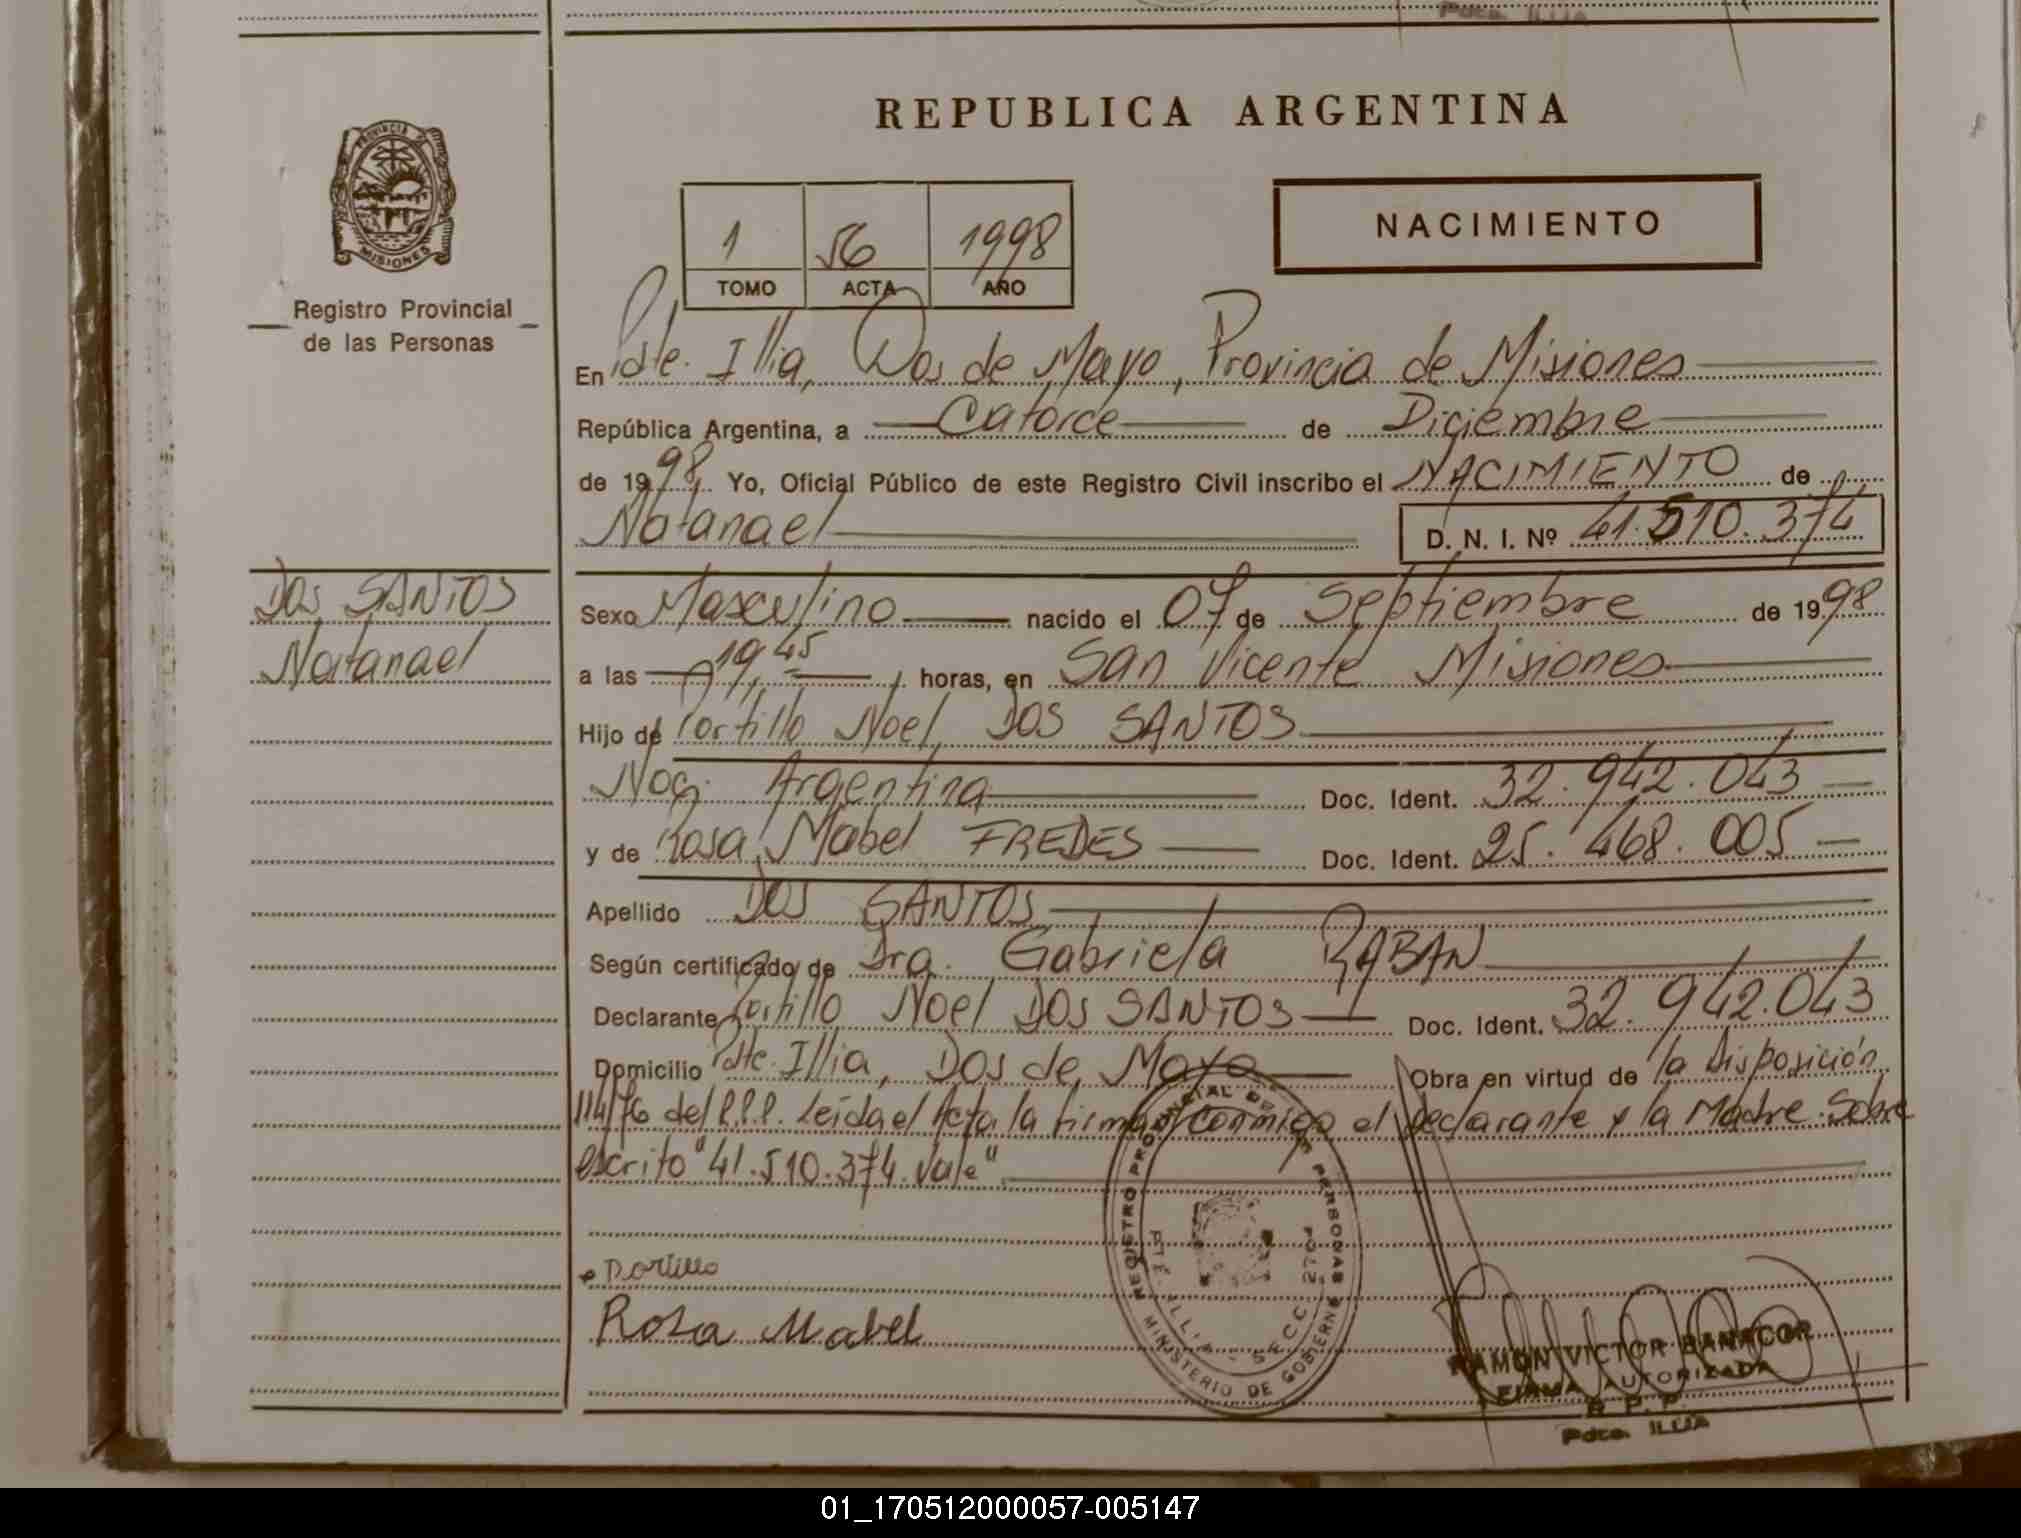 REPUBLICA ARGENTINA
PROVINCIA DE MISIONES
Registro Provincial
de las Personas
1 56 1998
TOMO ACTA AÑO
NACIMIENTO
En Pdte. Illia, Dos de Mayo, Provincia de Misiones
República Argentina, a Catorce de Diciembre
de 1998, Yo, Oficial Público de este Registro Civil inscribo el NACIMIENTO de
Natanael D. N. I. Nº 41.510.374
DOS SANTOS
Natanael
Sexo Masculino nacido el 07 de Septiembre de 1998
a las 19,45 horas, en San Vicente Misiones
Hijo de Portillo Noel DOS SANTOS
Nac. Argentina Doc. Ident. 32.942.043
y de Rosa Mabel FREDES Doc. Ident. 25.468.005
Apellido DOS SANTOS
Según certificado de Dra. Gabriela RABAN
Declarante Portillo Noel DOS SANTOS Doc. Ident. 32.942.043
Domicilio Pdte. Illia, Dos de Mayo Obra en virtud de la Disposición
114/76 del R.P.P. Leída el Acta la firman conmigo el Declarante y la Madre. Sobre
escrito "41.510.374. vale"
Portillo
Rosa Mabel
REGISTRO PROVINCIAL DE LAS PERSONAS
PTE. ILLIA - SECC. 2707
MINISTERIO DE GOBIERNO
RAMON VICTOR BANACOR
FIRMA AUTORIZADA
R. P. P.
Pdte. ILLIA
01_170512000057-005147